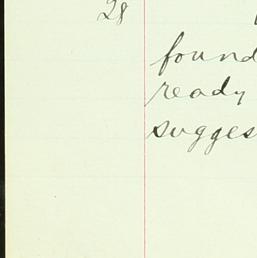 28
found
ready
sugges